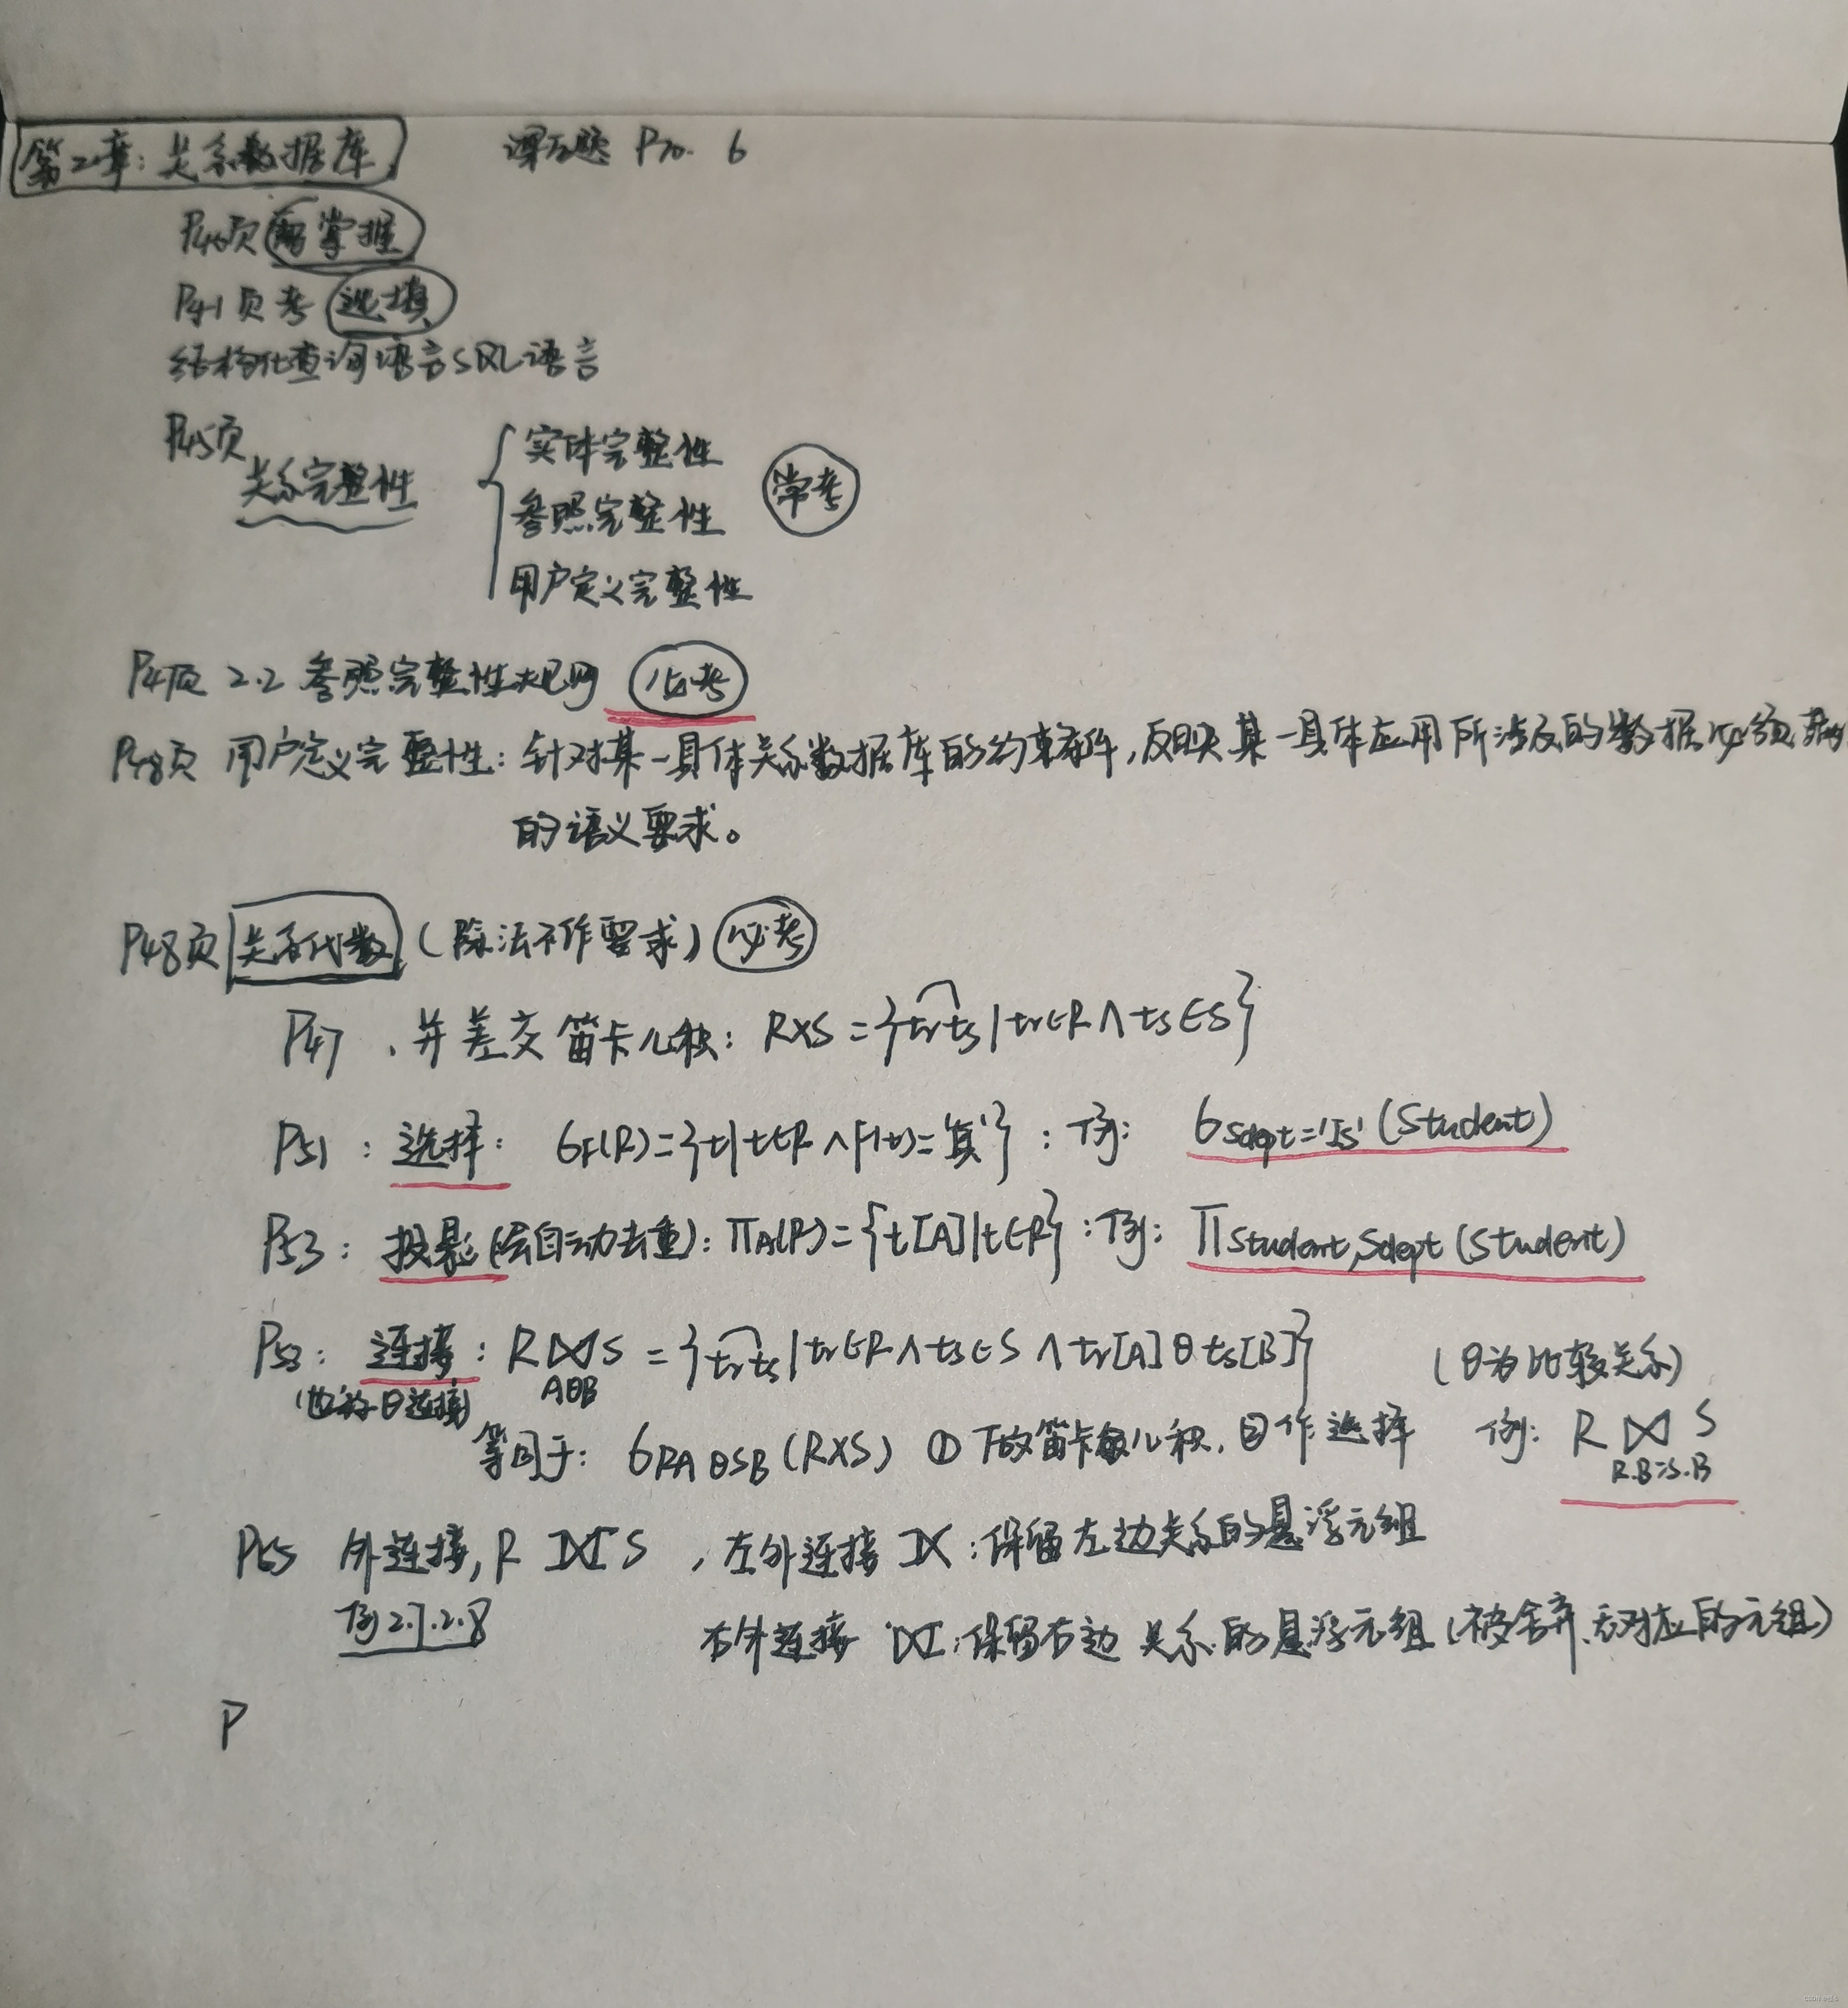 第二章:关系数据库 课后题 P70. 6
P40页 需掌握
P41页考 选填
结构化查询语言SQL语言
P45页
关系完整性
实体完整性
参照完整性
用户定义完整性
常考
P47页 2.2 参照完整性规则 必考
P48页 用户定义完整性:针对某一具体关系数据库的约束条件,反映某一具体应用所涉及的数据必须满足
的语义要求。
P48页 关系代数 (除法不作要求) 必考
P47 、并差交笛卡儿积: R×S={tr ts | tr∈R∧ts∈S}
P51 : 选择: σF(R)={t|t∈R∧F(t)='真'} : 例: σSdept='IS'(Student)
P53 : 投影(会自动去重): ΠA(R)={t[A]|t∈R} : 例: ΠStudent,Sdept(Student)
P53 : 连接 : R⋈S={tr ts | tr∈R∧ts∈S∧tr[A]θts[B]} (θ为比较关系)
(也称θ连接) AθB
等同于: σRAθSB(R×S) ①做笛卡儿积, ②作选择 例: R⋈S
R.B=S.B
P55 外连接, R⟗S , 左外连接⟕:保留左边关系的悬浮元组
例2.7.2.8 右外连接⟖:保留右边关系的悬浮元组(被舍弃、无对应的元组)
P